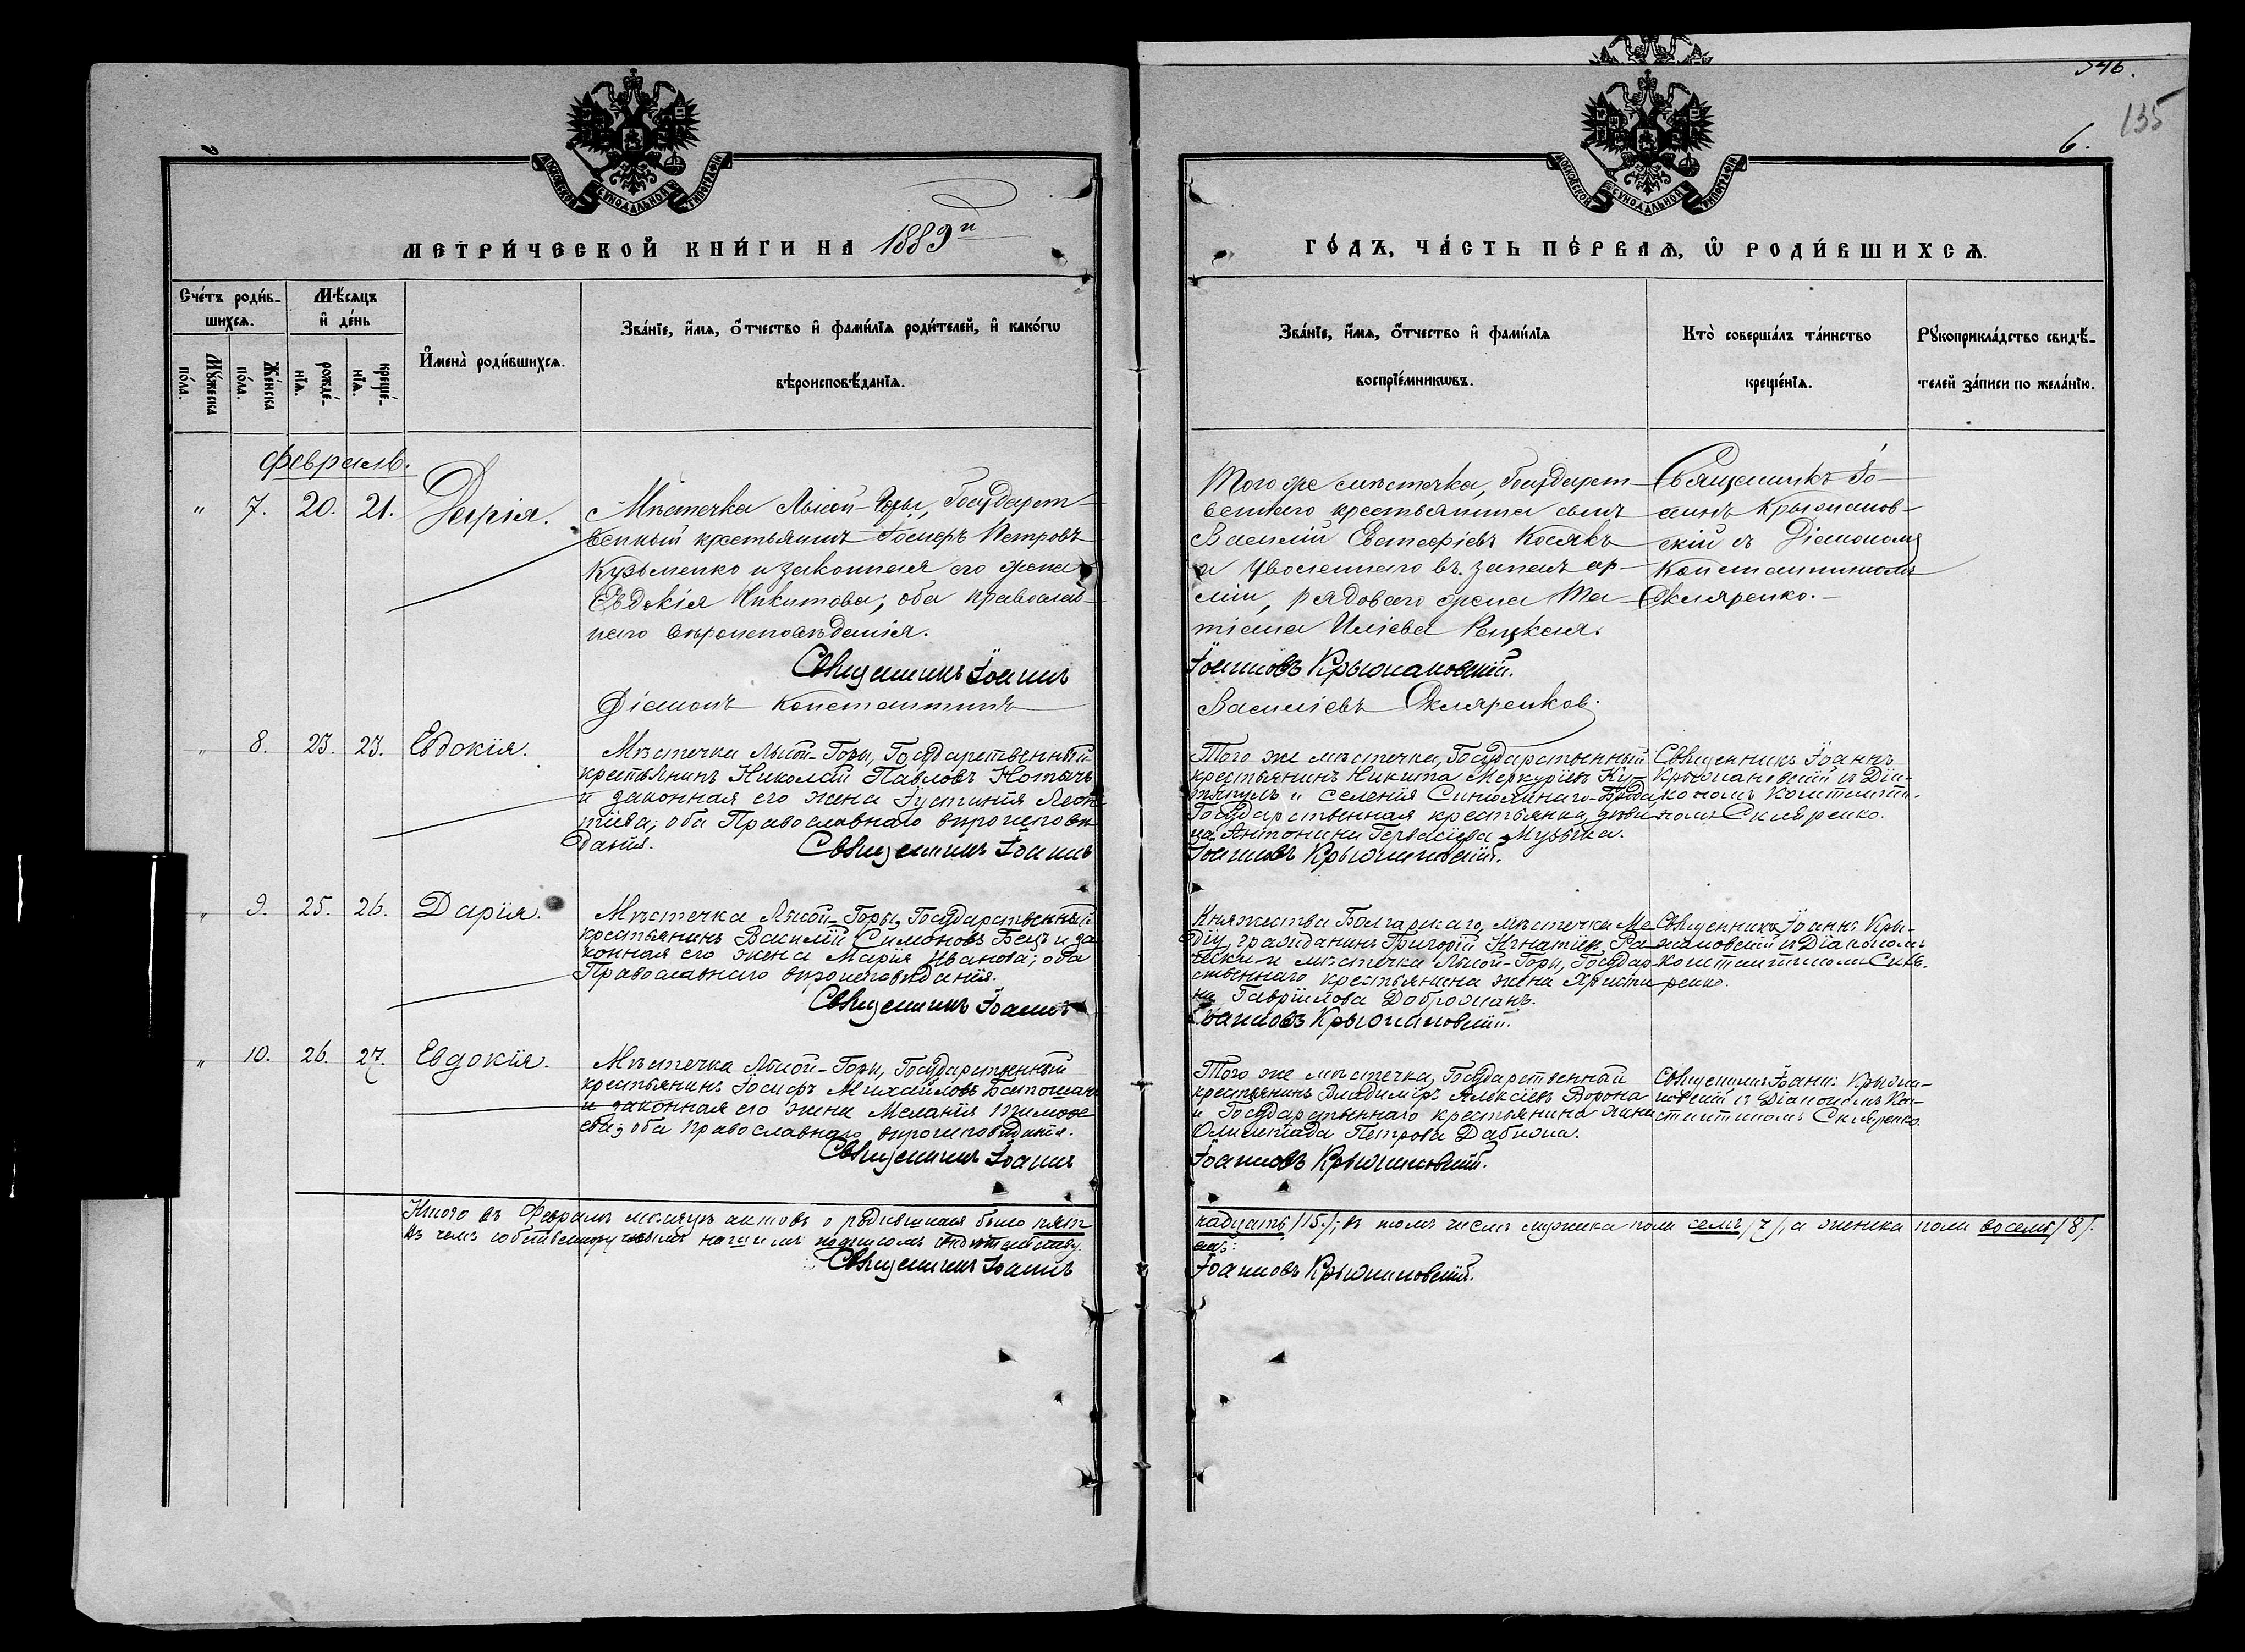 546.
135
6.
МОСКОВСКОЙ СѴНОДАЛЬНОЙ ТИПОГРАФІИ
МОСКОВСКОЙ СѴНОДАЛЬНОЙ ТИПОГРАФІИ
МЕТРИ́ЧЕСКОЙ КНИ́ГИ НА 1889й
ГО́ДЪ, ЧА́СТЬ ПЕ́РВАѦ, Ѿ РОДИ́ВШИХСѦ.
Сче́тъ роди́в-
шихсѧ.
Мꙋ́жеска
по́ла.
Же́нска
по́ла.
Мѣ́сѧцъ
и҆ де́нь
рожде́-
нїѧ.
креще́-
нїѧ.
И҆мена̀ роди́вшихсѧ.
Зва́нїе, и҆́мѧ, ѻ҆́тчество и҆ фами́лїѧ роди́телей, и҆ како́гѡ
вѣроисповѣ́данїѧ.
Зва́нїе, и҆́мѧ, ѻ҆́тчество и҆ фами́лїѧ
воспрїе́мникѡвъ.
Кто̀ соверша́лъ та́инство
креще́нїѧ.
Рꙋкоприкла́дство свидѣ́-
телей за́писи по жела́нїю.
Февраль.
" 7. 20. 21. Дарія.
Мѣстечка Лысой-Горы, Государст-
венный крестьянинъ Іосифъ Петровъ
Кузьменко и законная его жена
Евдокія Никитова; оба православ-
наго вѣроисповѣданія.
Священникъ Іоаннъ
Діаконъ Константинъ
Того же мѣстечка, Государст-
веннаго крестьянина сынъ
Василій Евстафіевъ Косякъ
и уволеннаго въ запасъ ар-
міи, рядоваго жена Та-
тіана Иліева
Іоанновъ Крыжановскій.
Василіевъ Скляренков.
Священникъ Іо-
аннъ Крыжанов-
скій съ Діакономъ
Константиномъ
Скляренко.
" 8. 23. 23. Евдокія.
Мѣстечка Лысой-Горы, Государственный
крестьянинъ Николай Павловъ
и законная его жена Іустинія Леон
тіева; оба Православнаго вѣроисповѣ
данія.
Священникъ Іоаннъ
Того же мѣстечка, Государственный
крестьянинъ Никита Меркуріевъ
и селенія
Государственная крестьянка, дѣви
ца Антонина Гервасіева Музыка.
Іоанновъ Крыжановскій.
Священникъ Іоаннъ
Крыжановскій съ Діа-
кономъ Константи-
номъ Скляренко.
" 9. 25. 26. Дарія.
Мѣстечка Лысой-Горы, Государственный
крестьянинъ Василій Симоновъ Бецъ и за
конная его жена Марія Иванова; оба
Православнаго вѣроисповѣданія.
Священникъ Іоаннъ
Княжества Болгарскаго, мѣстечка
гражданинъ Григорій Игнатіев
и мѣстечка Лысой-Горы, Государ-
ственнаго крестьянина жена Христи
на Гавріилова Доброжанъ.
Іоанновъ Крыжановскій.
Священникъ Іоаннъ Кры-
жановскій съ Діакономъ
Константиномъ Скля-
ренко.
" 10. 26. 27. Евдокія.
Мѣстечка Лысой-Горы, Государственный
крестьянинъ Іосифъ Михайловъ
и законная его жена Меланія Тимофе
ева; оба Православнаго вѣроисповѣданія.
Священникъ Іоаннъ
Того же мѣстечка, Государственный
крестьянинъ Владиміръ Алексіевъ Ворона
и Государственнаго крестьянина жена
Олимпіада Петрова Дабижа.
Іоанновъ Крыжановскій.
Священникъ Іоаннъ Крыжа-
новскій съ Діакономъ Кон-
стантиномъ Скляренко.
Итого въ Февралѣ мѣсяцѣ актовъ о родившихся было пят
надцать /15/; въ томъ числѣ мужеска пола семь /7/, а женска пола восемь /8/.
въ чемъ собственноручнымъ нашимъ подписомъ свидѣтельству
емъ:
Священникъ Іоаннъ
Іоанновъ Крыжановскій.